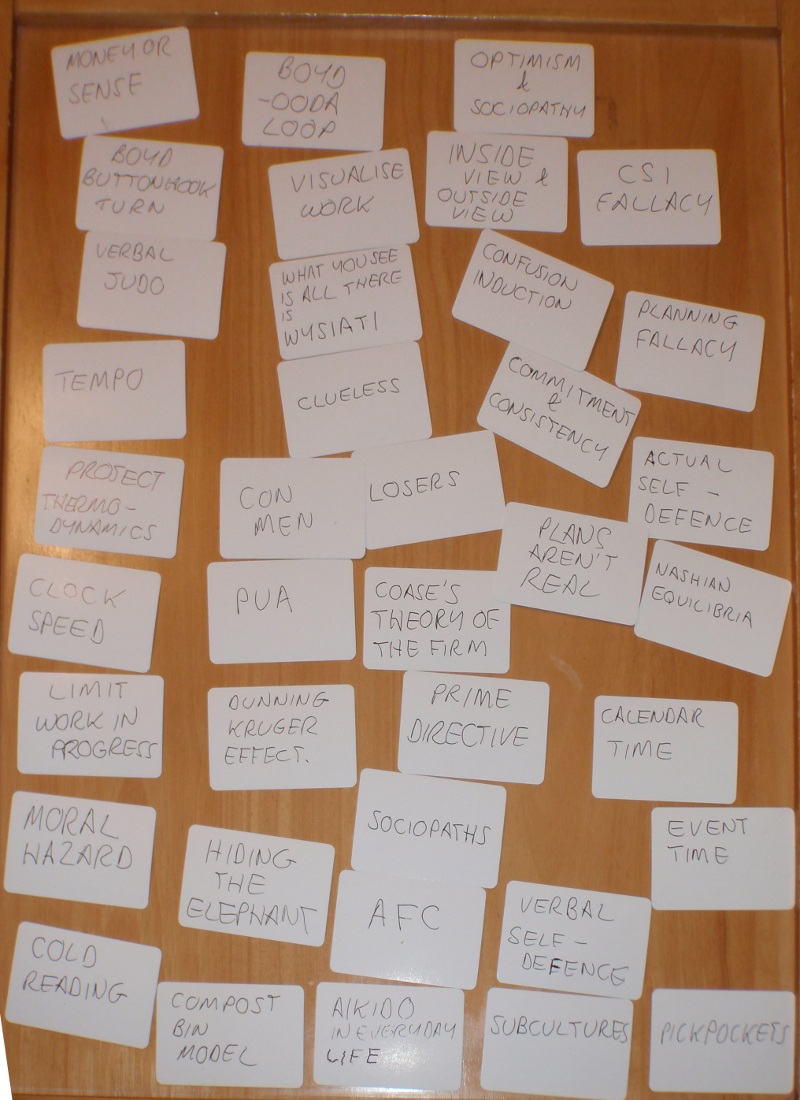 MONEY OR
SENSE
BOYD
-OODA
LOOP
OPTIMISM
&
SOCIOPATHY
BOYD
BUTTONHOOK
TURN
VISUALISE
WORK
INSIDE
VIEW &
OUTSIDE
VIEW
CSI
FALLACY
VERBAL
JUDO
WHAT YOU SEE
IS ALL THERE
IS
WYSIATI
CONFUSION
INDUCTION
PLANNING
FALLACY
TEMPO
CLUELESS
COMMITMENT
&
CONSISTENCY
PROJECT
THERMO-
DYNAMICS
CON
MEN
LOSERS
ACTUAL
SELF -
DEFENCE
PLANS
AREN'T
REAL
CLOCK
SPEED
PUA
COASE'S
THEORY OF
THE FIRM
NASHIAN
EQUILIBRIA
LIMIT
WORK IN
PROGRESS
DUNNING
KRUGER
EFFECT.
PRIME
DIRECTIVE
CALENDAR
TIME
MORAL
HAZARD
HIDING
THE
ELEPHANT
SOCIOPATHS
EVENT
TIME
AFC
VERBAL
SELF -
DEFENCE
COLD
READING
COMPOST
BIN
MODEL
AIKIDO
IN EVERYDAY
LIFE
SUBCULTURES
PICKPOCKETS